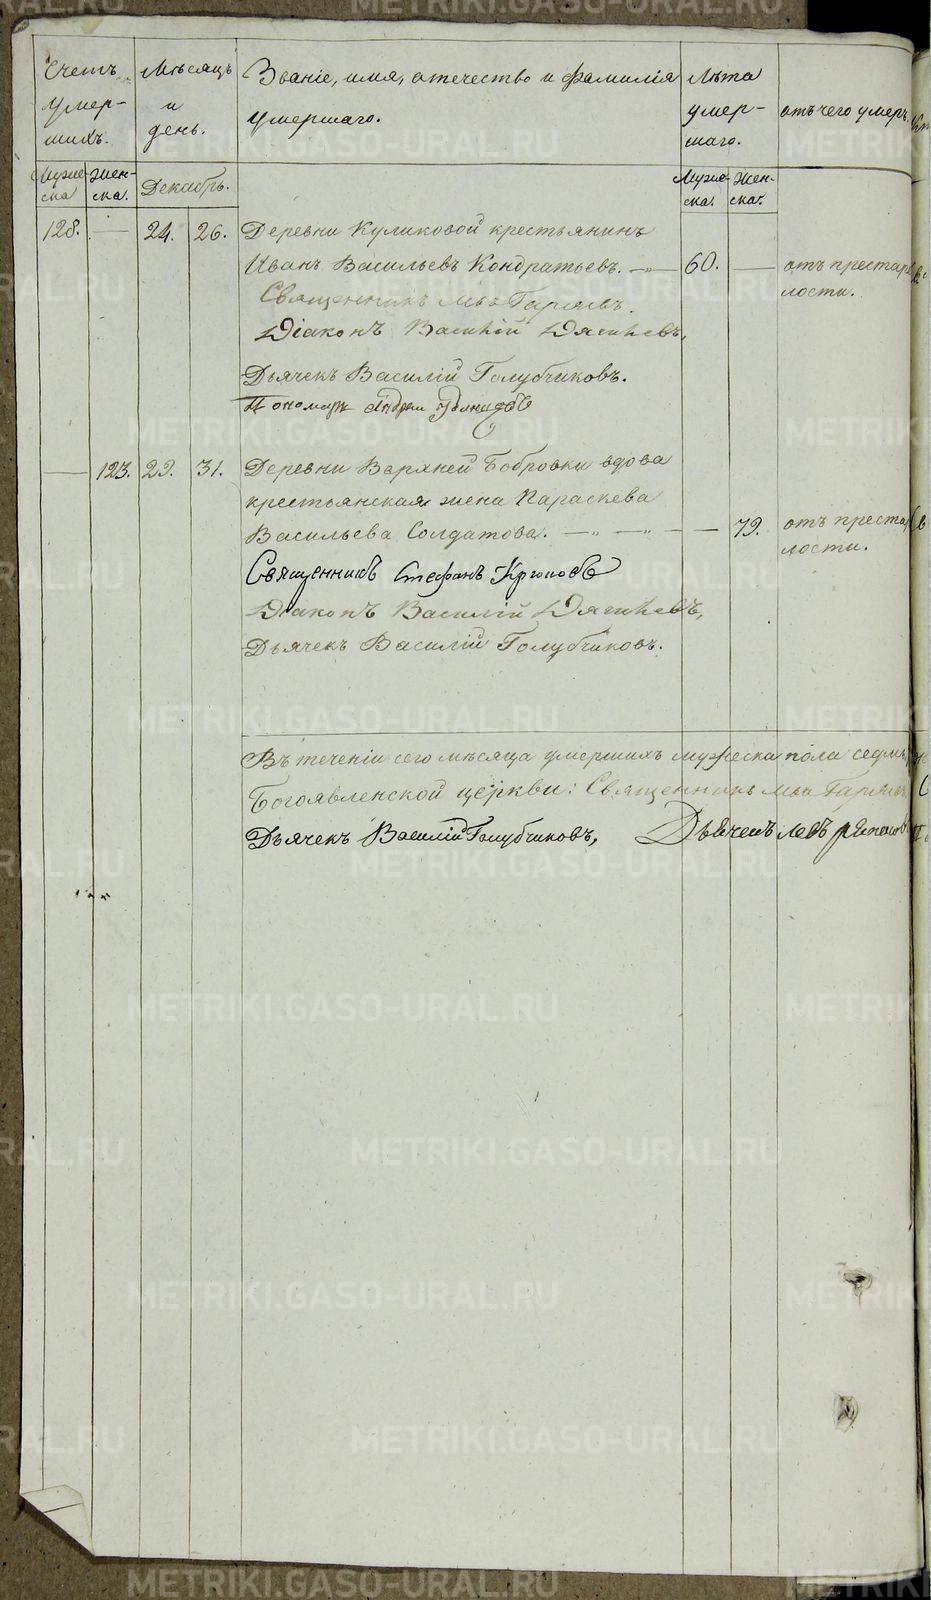 Счетъ умер-шихъ.
Мѣсяцъ и день.
Званіе, имя, отечество и фамилія умершаго.
Лѣта умер-шаго.
отъ чего умеръ.
Мужес-ка
Жен-ска.
Декабрь.
Мужес-ка.
Жен-ска.
128. — 24. 26. Деревни Куликовой крестьянинъ
Иванъ Васильевъ Кондратьевъ. — 60. — отъ престарѣ
лости.
Священникъ Гаряевъ.
Діаконъ Василій Дягилевъ,
Дьячекъ Василій Голубчиковъ.
Пономарь Андрей
— 123. 29. 31. Деревни Верхней Бобровки вдова
крестьянская жена Параскева
Васильева Солдатова. — „ — „ — — 79. отъ престар
лости.
Священникъ Стефанъ
Діаконъ Василій Дягилевъ,
Дьячекъ Василій Голубчиковъ.
Въ теченіи сего мѣсяца умершихъ мужеска пола седмь
Богоявленской церкви: Священникъ Гаряевъ
Дьячекъ Василій Голубчиковъ, Дьячекъ
METRIKI.GASO-URAL.RU